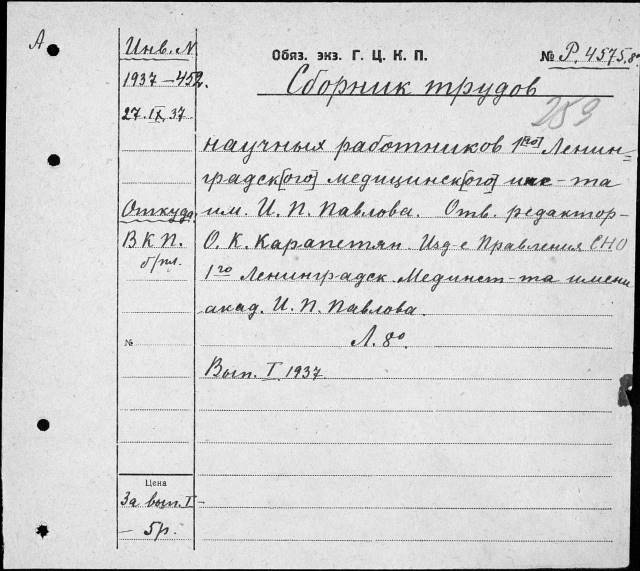 А
Инв. N
Обяз. экз. Г. Ц. К. П.
№ Р. 4575, 8º
1937 – 452.
Сборник трудов
27. IX. 37
научных работников 1[го] Ленин=
градск[ого] медицинск[ого] инс-та
Откуда
им. И. П. Павлова. Отв. редактор-
В К П.
О. К. Карапетян. Изд-е Правления СНО
б/пл.
1го Ленинградск. Мединст-та имени
акад. И. П. Павлова.
№
Л. 8º
Вып. I. 1937
Цена
За вып. I –
– 5р.